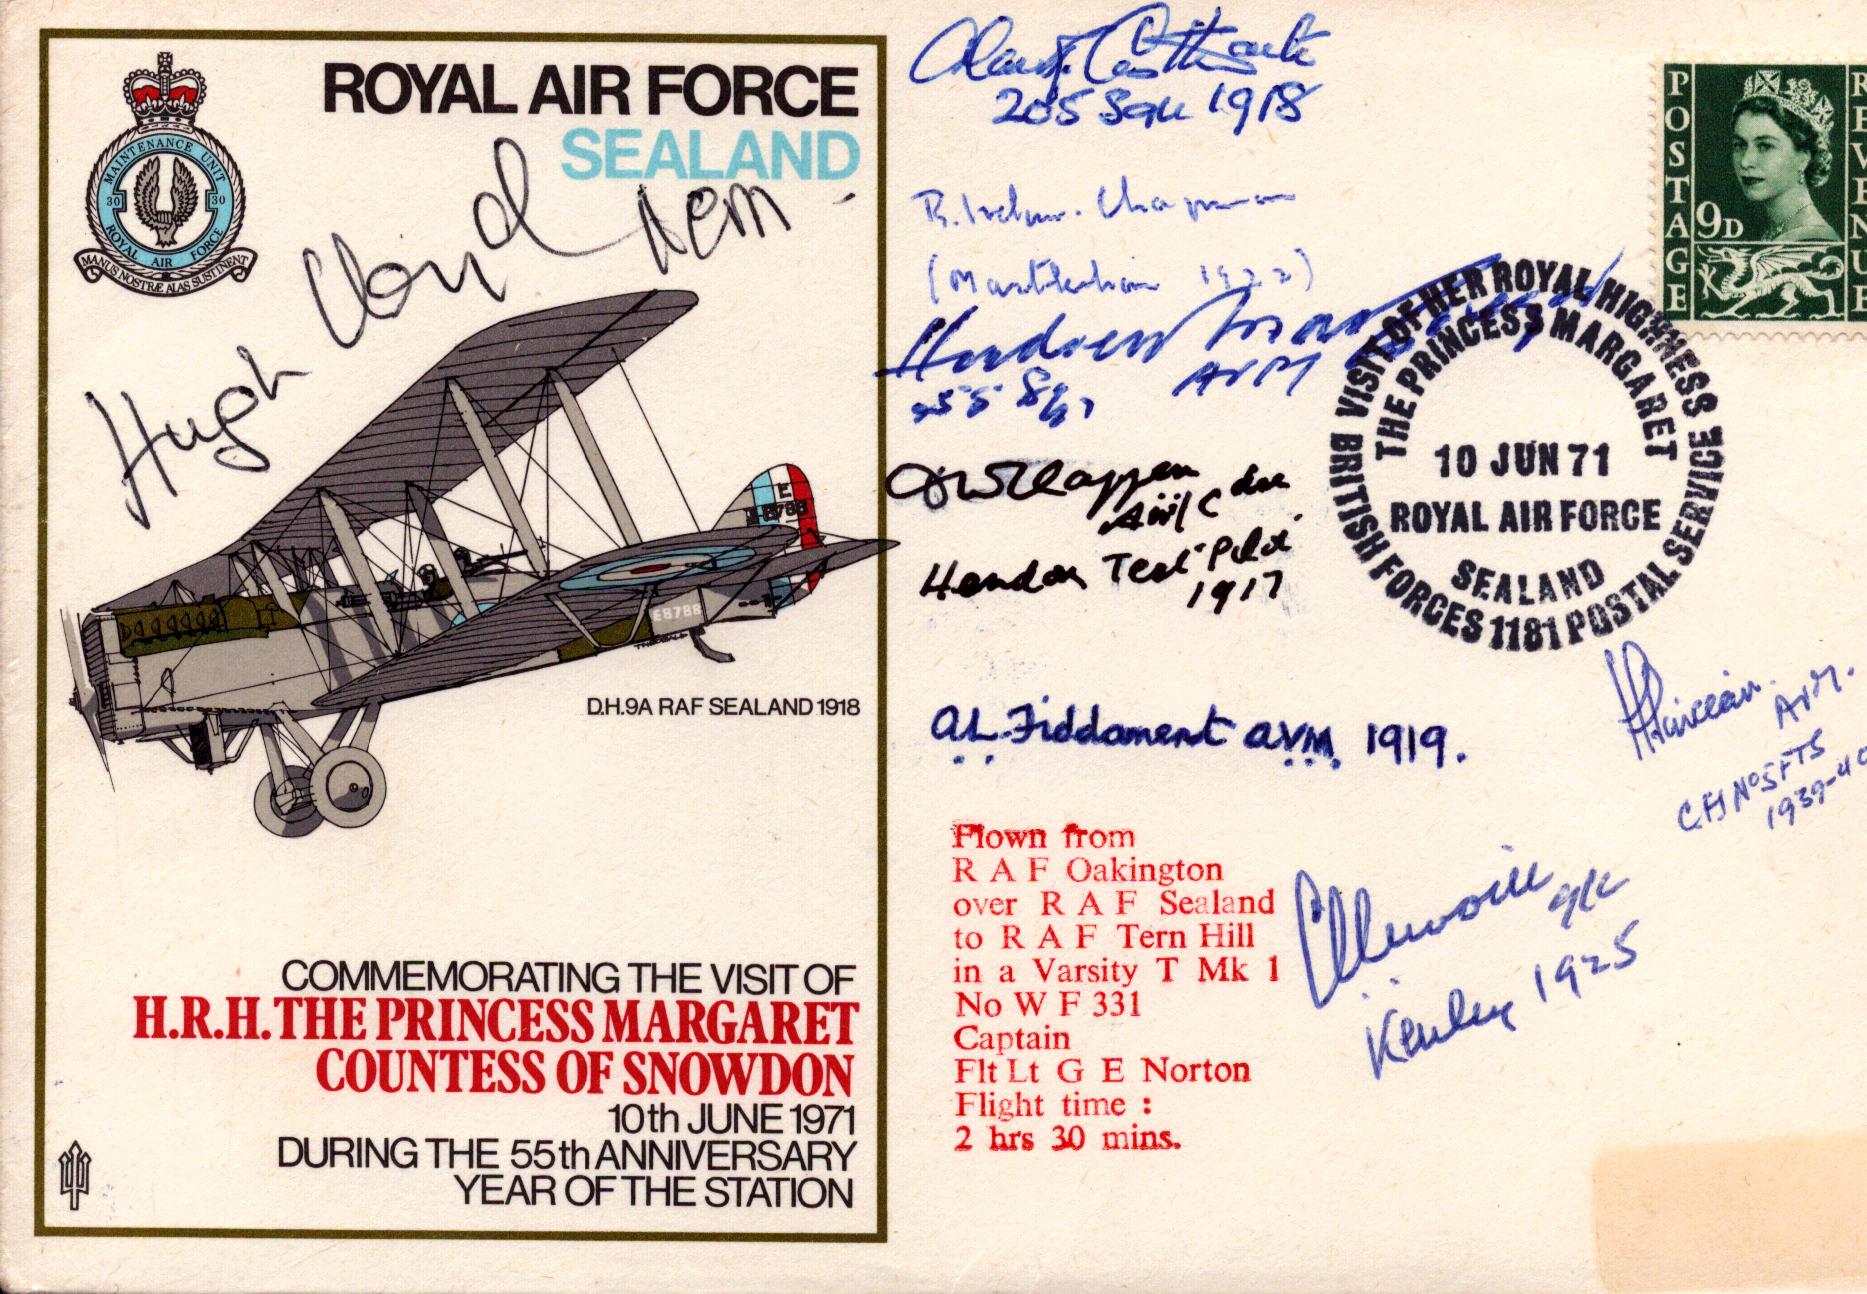 ROYAL AIR FORCE
SEALAND
MAINTENANCE UNIT
30 30
ROYAL AIR FORCE
MANUS NOSTRÆ ALAS SUSTINENT
Hugh Lloyd ACM
E
E8788
E8788
D.H.9A RAF SEALAND 1918
COMMEMORATING THE VISIT OF
H.R.H. THE PRINCESS MARGARET
COUNTESS OF SNOWDON
10th JUNE 1971
DURING THE 55th ANNIVERSARY
YEAR OF THE STATION
205 Sqn 1918
Chapman
1922)
Andrew
55 Sqn AVM
Air/C
Hendon Test Pilot
1917
A.L. Fiddament AVM 1919.
Flown from
R A F Oakington
over R A F Sealand
to R A F Tern Hill
in a Varsity T Mk 1
No W F 331
Captain
Flt Lt G E Norton
Flight time :
2 hrs 30 mins.
POSTAGE
REVENUE
9D
VISIT OF HER ROYAL HIGHNESS
THE PRINCESS MARGARET
10 JUN 71
ROYAL AIR FORCE
SEALAND
BRITISH FORCES 1181 POSTAL SERVICE
AVM.
CFI No 5 FTS
1939-40
G/C
Kenley 1925